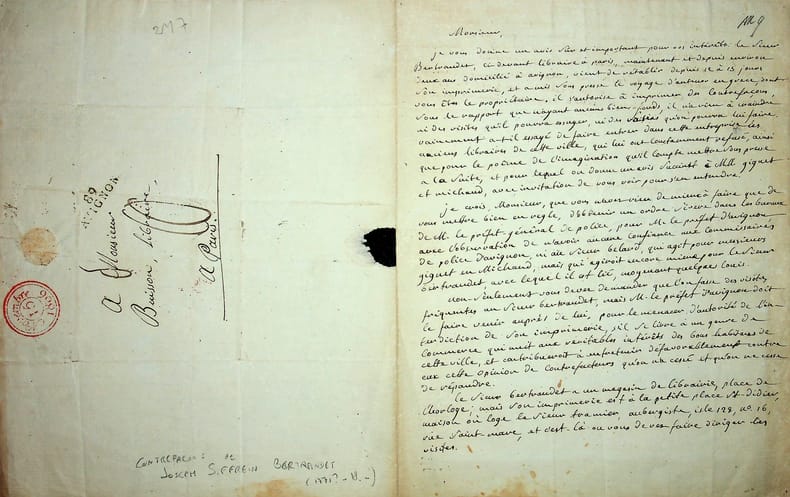 2M7
89
AVIGNON
A Monsieur
Buisson libraire
A Paris.
CONTREFAÇON DE
JOSEPH SIFFREIN BERTRANDET
Monsieur,
je vous donne un avis sûr et important pour vos intérêts. le sieur
Bertrandet, ci-devant libraire à paris, maintenant et depuis environ
deux ans domicilié à avignon, vient de rétablir depuis 12 à 15 jours
son imprimerie, et a mis sous presse le voyage d'anténor en grèce, dont
vous êtes le propriétaire, il s'autorise à imprimer des contrefaçons,
sous le rapport que n'ayant aucuns bien-fonds, il n'a rien à craindre
ni des visites qu'il pourra essuyer, ni des saisies qu'on pourra lui faire.
vainement a-t-il essayé de faire entrer dans cette entreprise les
anciens libraires de cette ville, qui lui ont constamment refusé, ainsi
que pour le poëme de l'imagination qu'il compte mettre sous presse
à la suite, et pour lequel on donne un avis succint à MM. giguet
et michaud, avec invitation de vous voir pour s'en entendre.
je crois, Monsieur, que vous n'avez rien de mieux à faire que de
vous mettre bien en règle, d'obtenir un ordre sévère dans les bureaux
de M. le préfet général de police, pour M. le préfet d'avignon
avec l'observation de n'avoir aucune confiance aux commissaires
de police d'avignon, ni au sieur, qui agit pour messieurs
giguet et Michaud, mais qui agiroit encore mieux pour le sieur
bertrandet, avec lequel il est lié, moyenant quelques Louis.
non-seulement vous devez demander que l'on fasse des visites
fréquentes au sieur bertrandet, mais M. le préfet d'avignon doit
le faire venir auprès de lui, pour le menacer d'autorité de l'in-
terdiction de son imprimerie, s'il se livre à un genre de
commerce qui nuit aux véritables intérêts des bons habitans de
cette ville, et contribueroit à entretenir défavorablement contre
eux cette opinion de contrefacteurs qu'on n'a cessé et qu'on ne cesse
de répandre.
Le sieur bertrandet a un magasin de librairie, place de
l'horloge; mais son imprimerie est à la petite place St. didier,
maison où loge le sieur tramier, aubergiste, isle 128, no. 16,
rue saint-marc, et c'est-là où vous devez faire diriger les
visites.